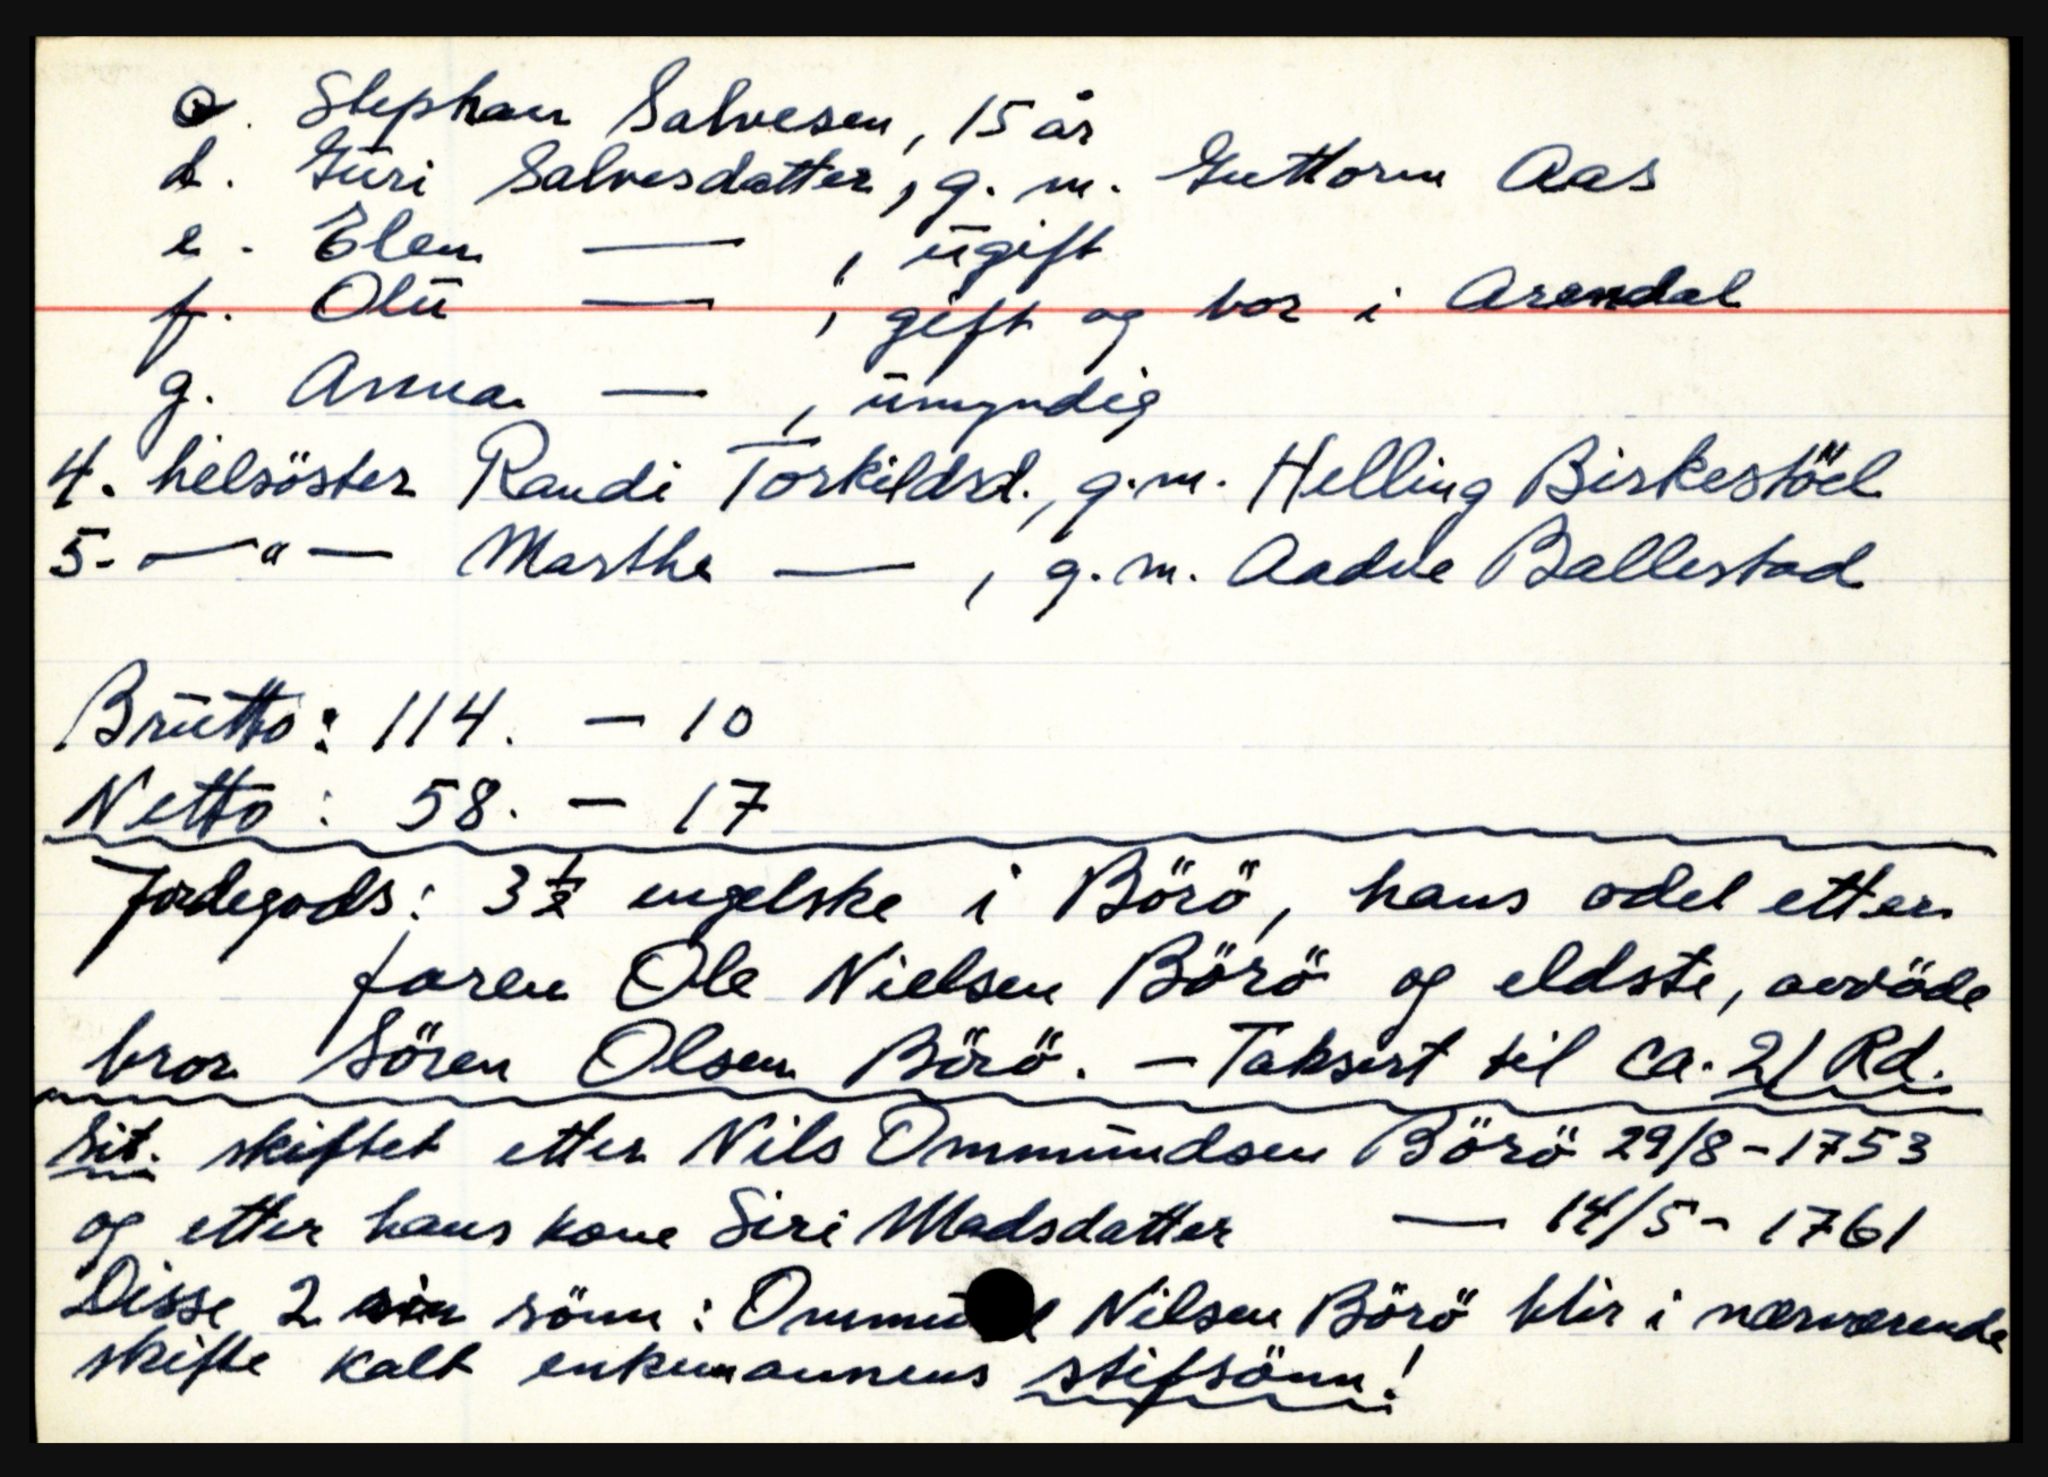 c. Stephan Salvesen, 15 år
d. Guri Salvesdatter, g. m. Guttorm Aas
e. Elen — , ugift
f. Olu — , gift og bor i Arendal
g. Anna — , umyndig
4. helsöster Randi Torkildsd., g.m. Helling Birkestöel
5. — " — Marthe — , g.m. Aadne Ballestad
Brutto: 114. — 10
Netto: 58. — 17
Jordegods: 3 1/2 engelske i Börö, hans odel etter
faren Ole Nielsen Börö og eldste, avdöde
bror Sören Olsen Börö. — Taksert til ca. 21 Rd.
Sit. skiftet etter Nils Ommundsen Börö 29/8 - 1753
og etter hans kone Siri Madsdatter — 14/5 - 1761
Disse 2 sönn: Ommund Nilsen Börö blir i nærværende
skifte kalt enkemannens stifsönn!